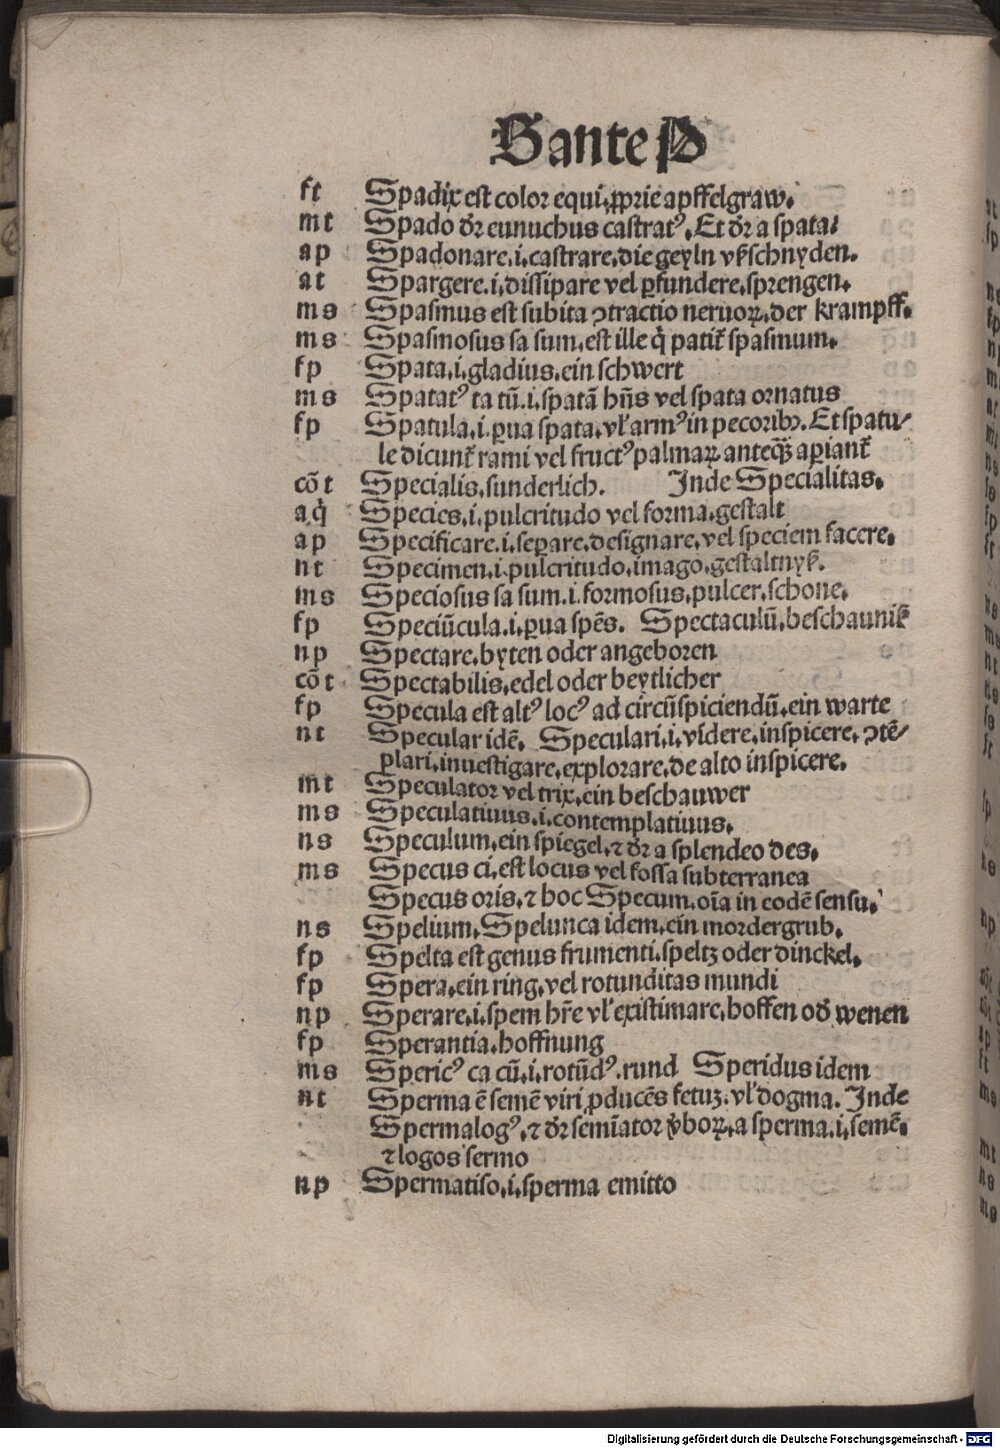 S ante P
ft Spadix est color equi, ꝓprie apffelgraw.
mt Spado dr̄ eunuchus castratꝰ. Et dr̄ a spata/
ap Spadonare .i. castrare, die geyln vßschnyden.
at Spargere .i. dissipare vel ꝑfundere, sprengen.
ms Spasmus est subita ↄtractio neruoꝝ, der krampff.
ms Spasmosus sa sum, est ille q̇ patit̄ spasmum.
fp Spata .i. gladius, ein schwert
ms Spatatꝰ ta tū .i. spatā hn̄s vel spata ornatus
fp Spatula .i. ꝑua spata, vl' armꝰ in pecoribꝫ. Et spatu/
le dicunt̄ rami vel fructꝰ palmaꝝ anteqꝫ̄ aꝑiant̄
cō t Specialis, sunderlich. Inde Specialitas.
a q̇ Species .i. pulcritudo vel forma, gestalt
ap Specificare .i. seꝑare, designare, vel speciem facere.
nt Specimen .i. pulcritudo, imago, gestaltnyß.
ms Speciosus sa sum .i. formosus, pulcer, schone.
fp Speciūcula .i. ꝑua spēs. Spectaculū, beschauniß
np Spectare, byten oder angeboren
cō t Spectabilis, edel oder beytlicher
fp Specula est altꝰ locꝰ ad circūspiciendū, ein warte
nt Specular idē. Speculari .i. videre, inspicere, ↄtē/
plari, inuestigare, explorare, de alto inspicere.
mt Speculator vel trix, ein beschauwer
ms Speculatiuus .i. contemplatiuus.
ns Speculum, ein spiegel, ⁊ dr̄ a splendeo des.
ms Specus ci, est locus vel fossa subterranea
Specus oris, ⁊ hoc Specum, oīa in eodē sensu.
ns Speliu̅m, Spelunca idem, ein mordergrub.
fp Spelta est genus frumenti, speltz oder dinckel.
fp Spera, ein ring, vel rotunditas mundi
np Sperare .i. spem hr̄e vl' existimare, hoffen od̄ wenen
fp Sperantia, hoffnung
ms Spericꝰ ca cū .i. rotūdꝰ, rund Speridus idem
nt Sperma ē semē viri ꝓducēs fetuꝫ, vl' dogma. Inde
Spermalogꝰ, ⁊ dr̄ semiator v̄boꝝ, a sperma .i. semē.
⁊ logos sermo
np Spermatiso .i. sperma emitto
Digitalisierung gefördert durch die Deutsche Forschungsgemeinschaft - DFG